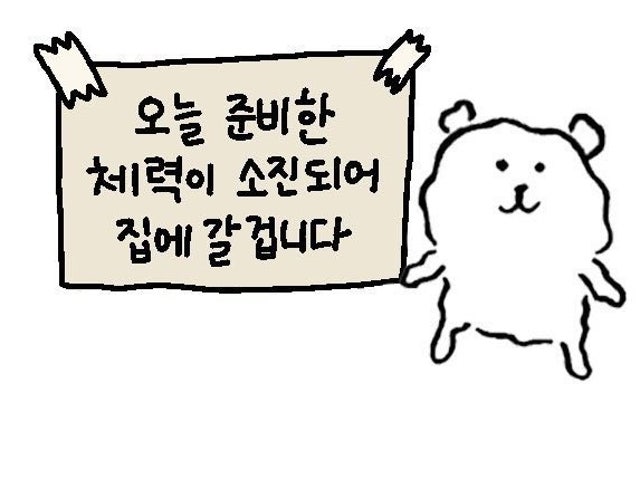 오늘 준비한
체력이 소진되어
집에 갈 겁니다